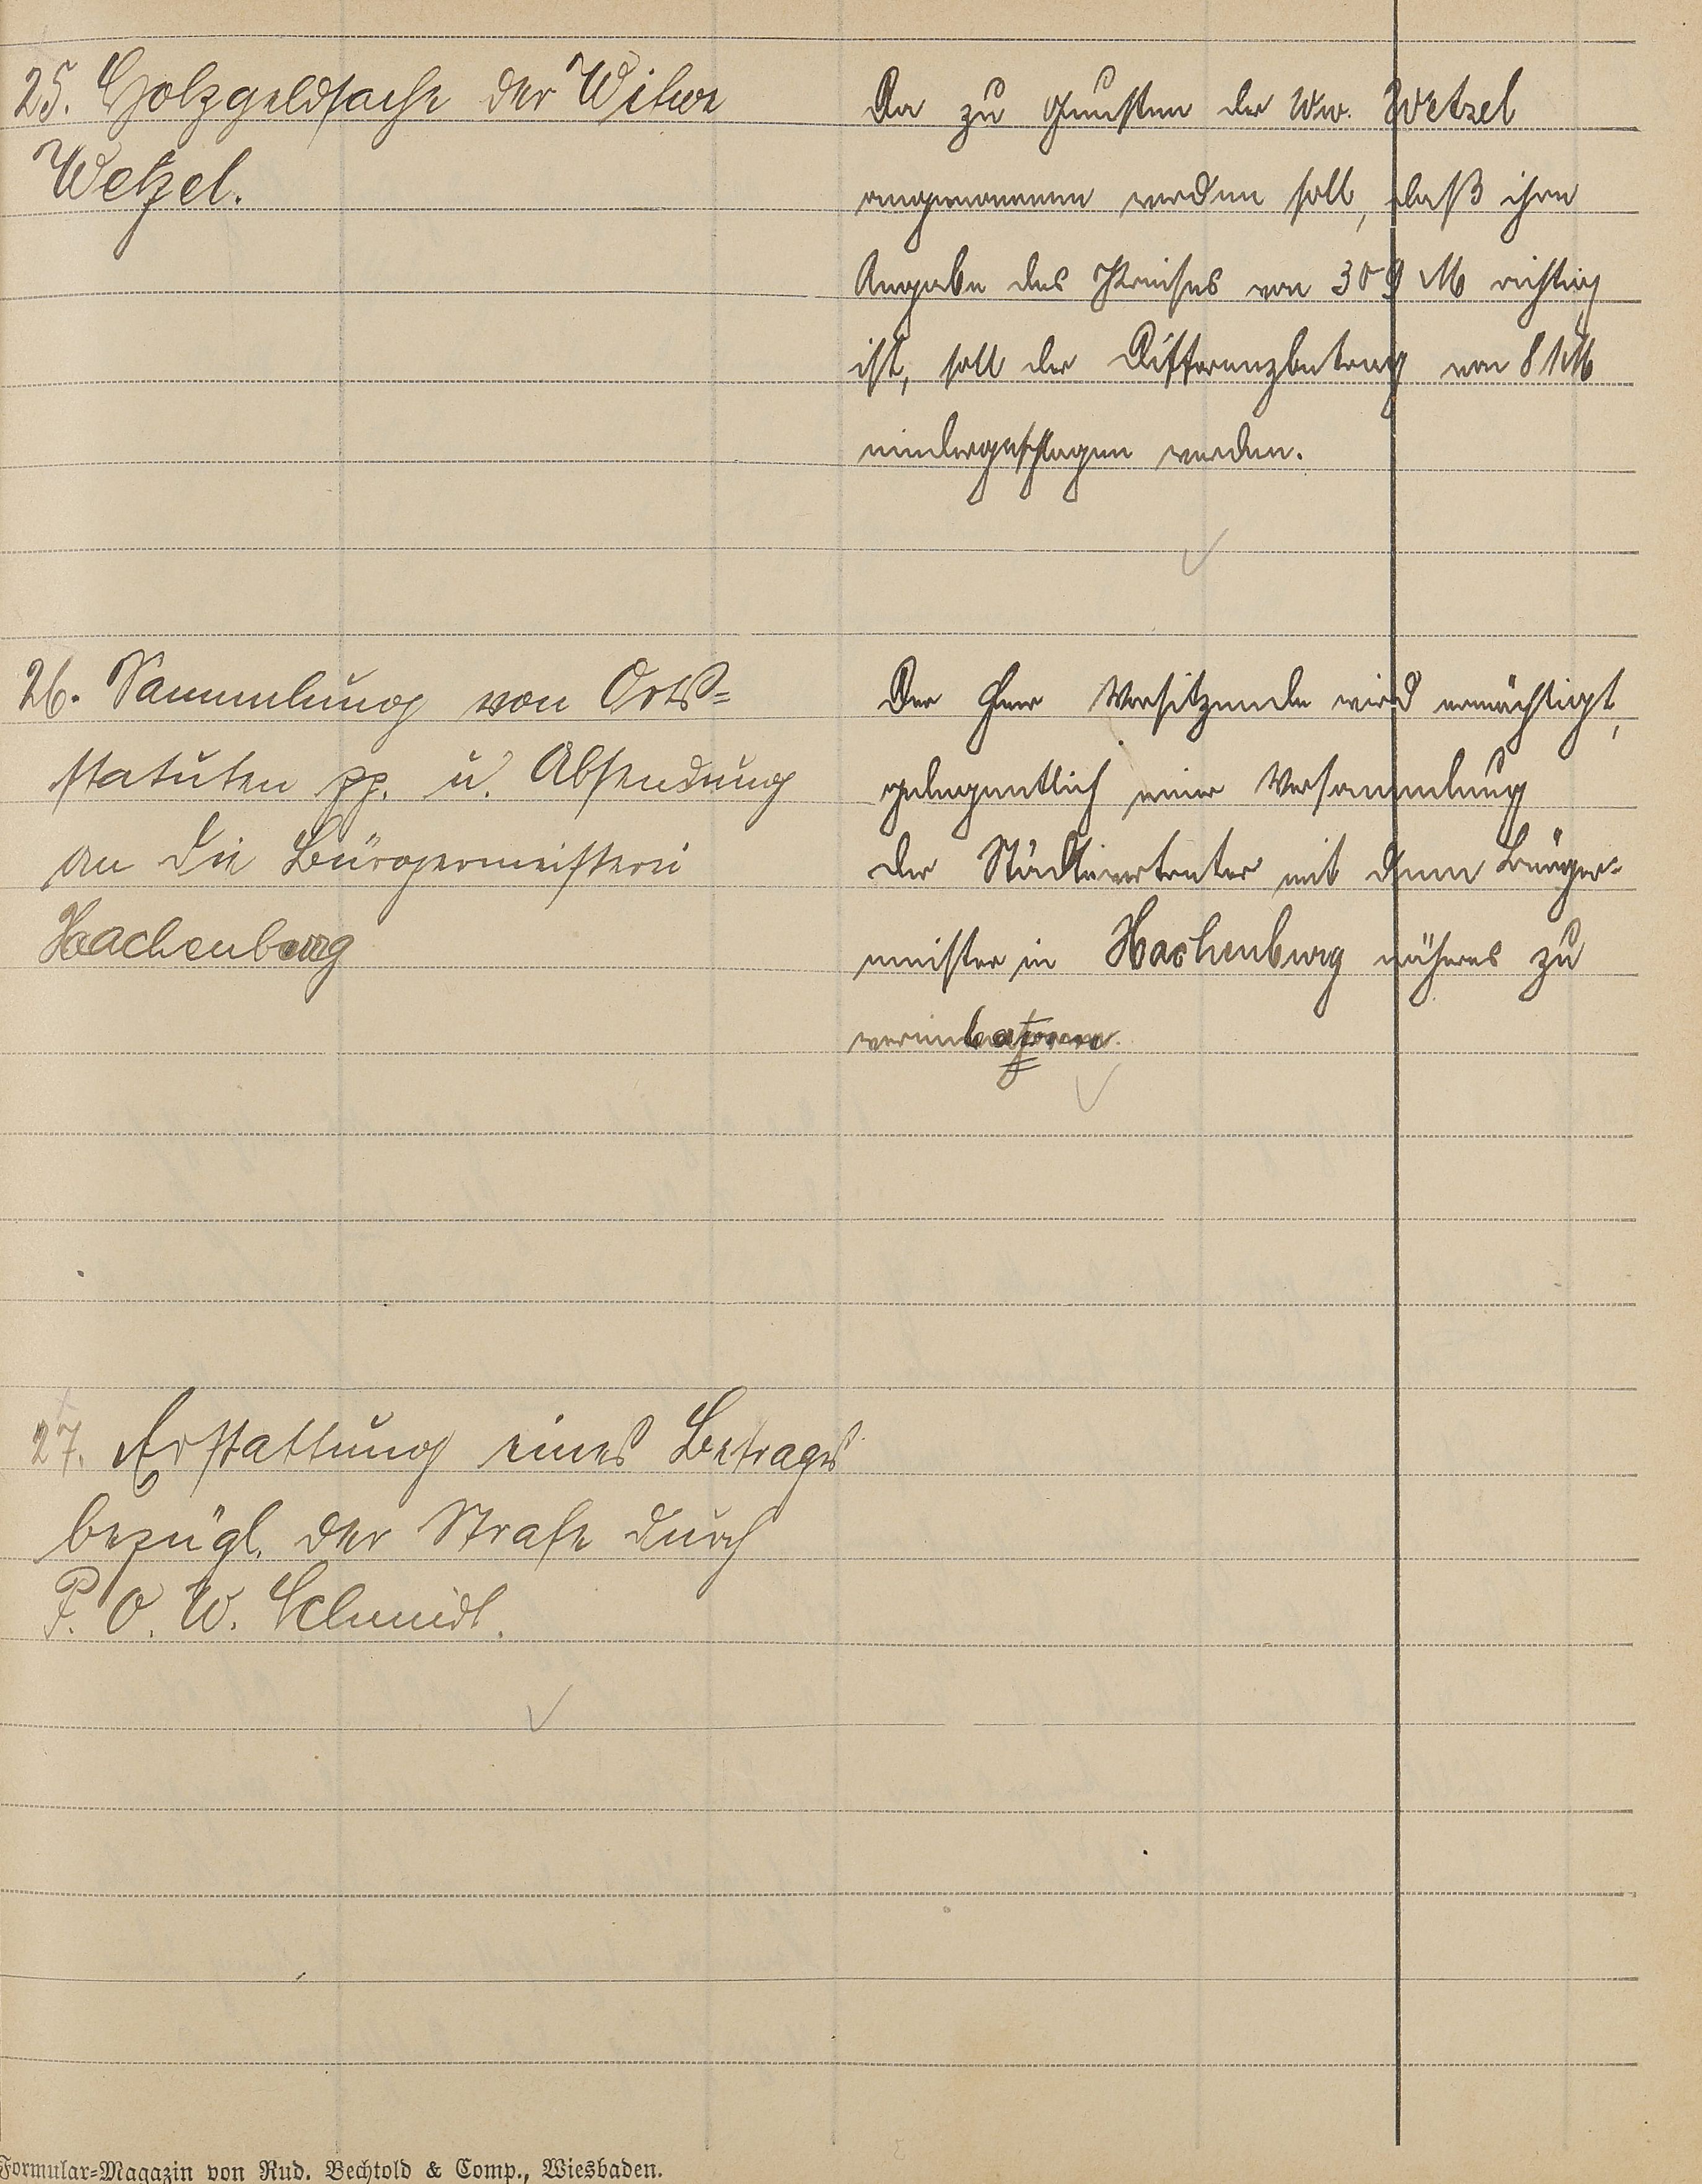 25. Holzgeldsache der Witwe
Wetzel.
Da zu Gunsten der Ww. Wetzel
angenommen werden soll, daß ihre
Angabe des Preises von 309 M richtig
ist, soll der Differenzbetrag von 81 M
niedergeschlagen werden.
26. Sammlung von Orts-
statuten pp. u. Absendung
an die Bürgermeisterei
Hachenburg
Der Herr Vorsitzende wird ermächtigt,
gelegentlich einer Versammlung
der Städtevertreter mit dem Bürger-
meister in Hachenburg näheres zu
vereinbaren.
27. Erstattung eines Betrages
bezügl. der Strafe durch
P. O. W. Schmidt.
Formular-Magazin von Rud. Bechtold & Comp., Wiesbaden.